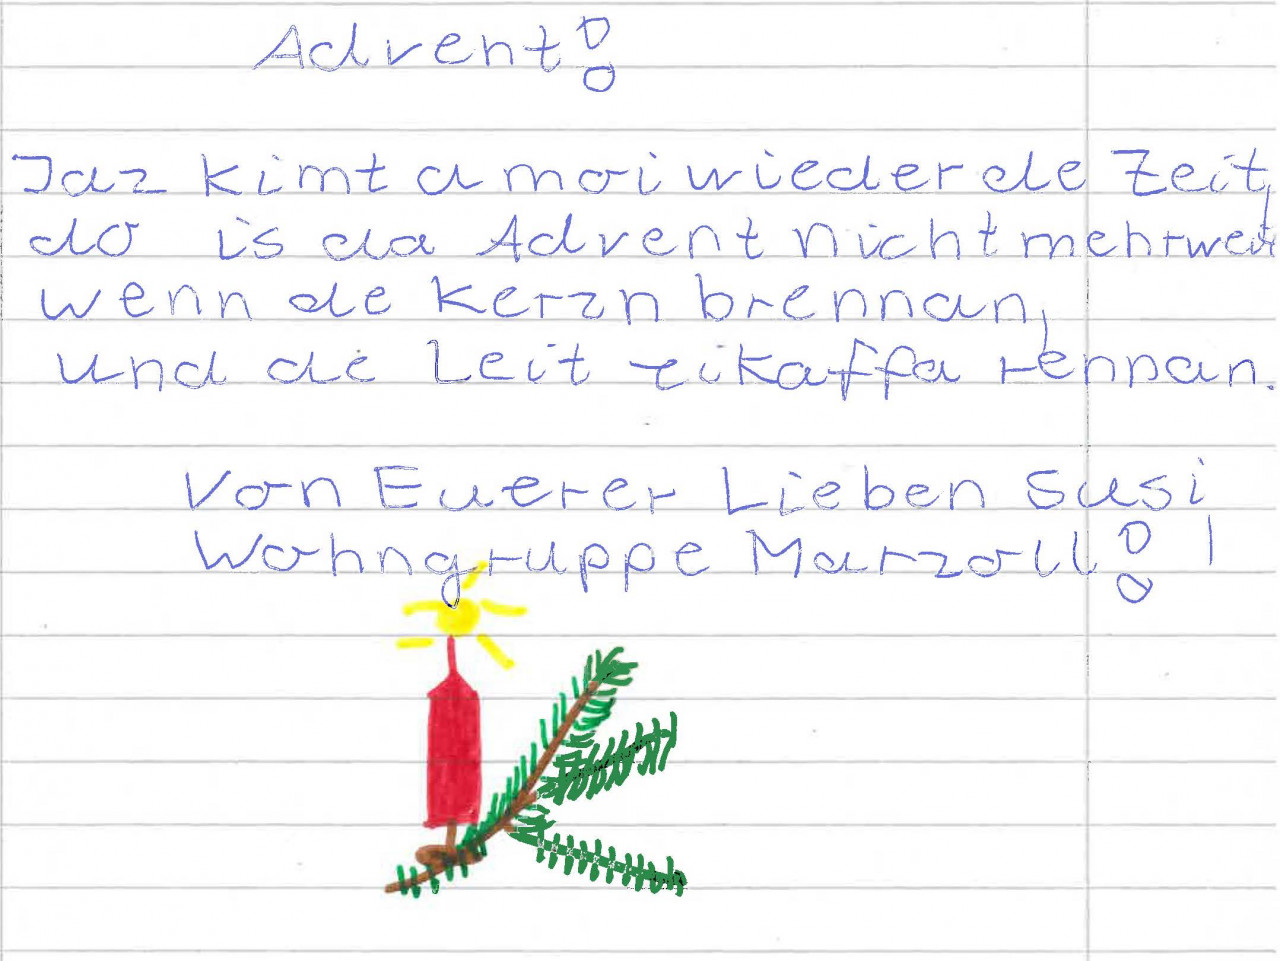 Advent!
Jaz kimt a moi wieder de Zeit,
do is da Advent nicht mehr weit
wenn de Kerzn brennan,
und de Leit eikaffa rennan.
Von Euerer Lieben Susi
Wohngruppe Marzoll! !